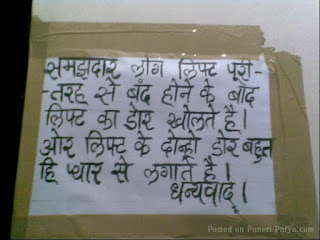 समझदार लोग लिफ्ट पूरी-
-तरह से बंद होने के बाद
लिफ्ट का डोर खोलते है।
ओर लिफ्ट के दोन्हो डोर बहुत
हि प्यार से लगाते है।
धन्यवाद्।
Posted on Puneri Patya.com